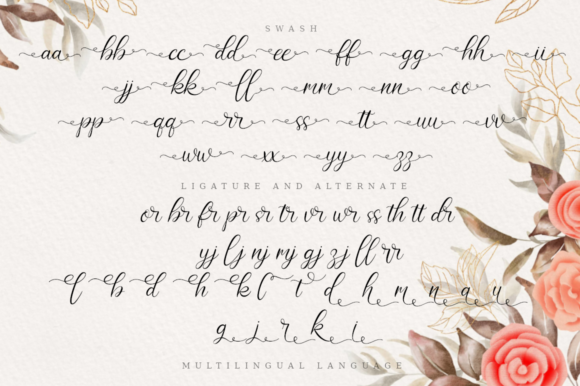 SWASH
aa bb cc dd ee ff gg hh ii
jj kk ll mm nn oo
pp qq rr ss tt uu vv
ww xx yy zz
LIGATURE AND ALTERNATE
or br fr pr sr tr vr wr ss th tt dr
yj lj nj rj gj zj ll rr
l b d h k l t d h m n a u
g j r k i
MULTILINGUAL LANGUAGE